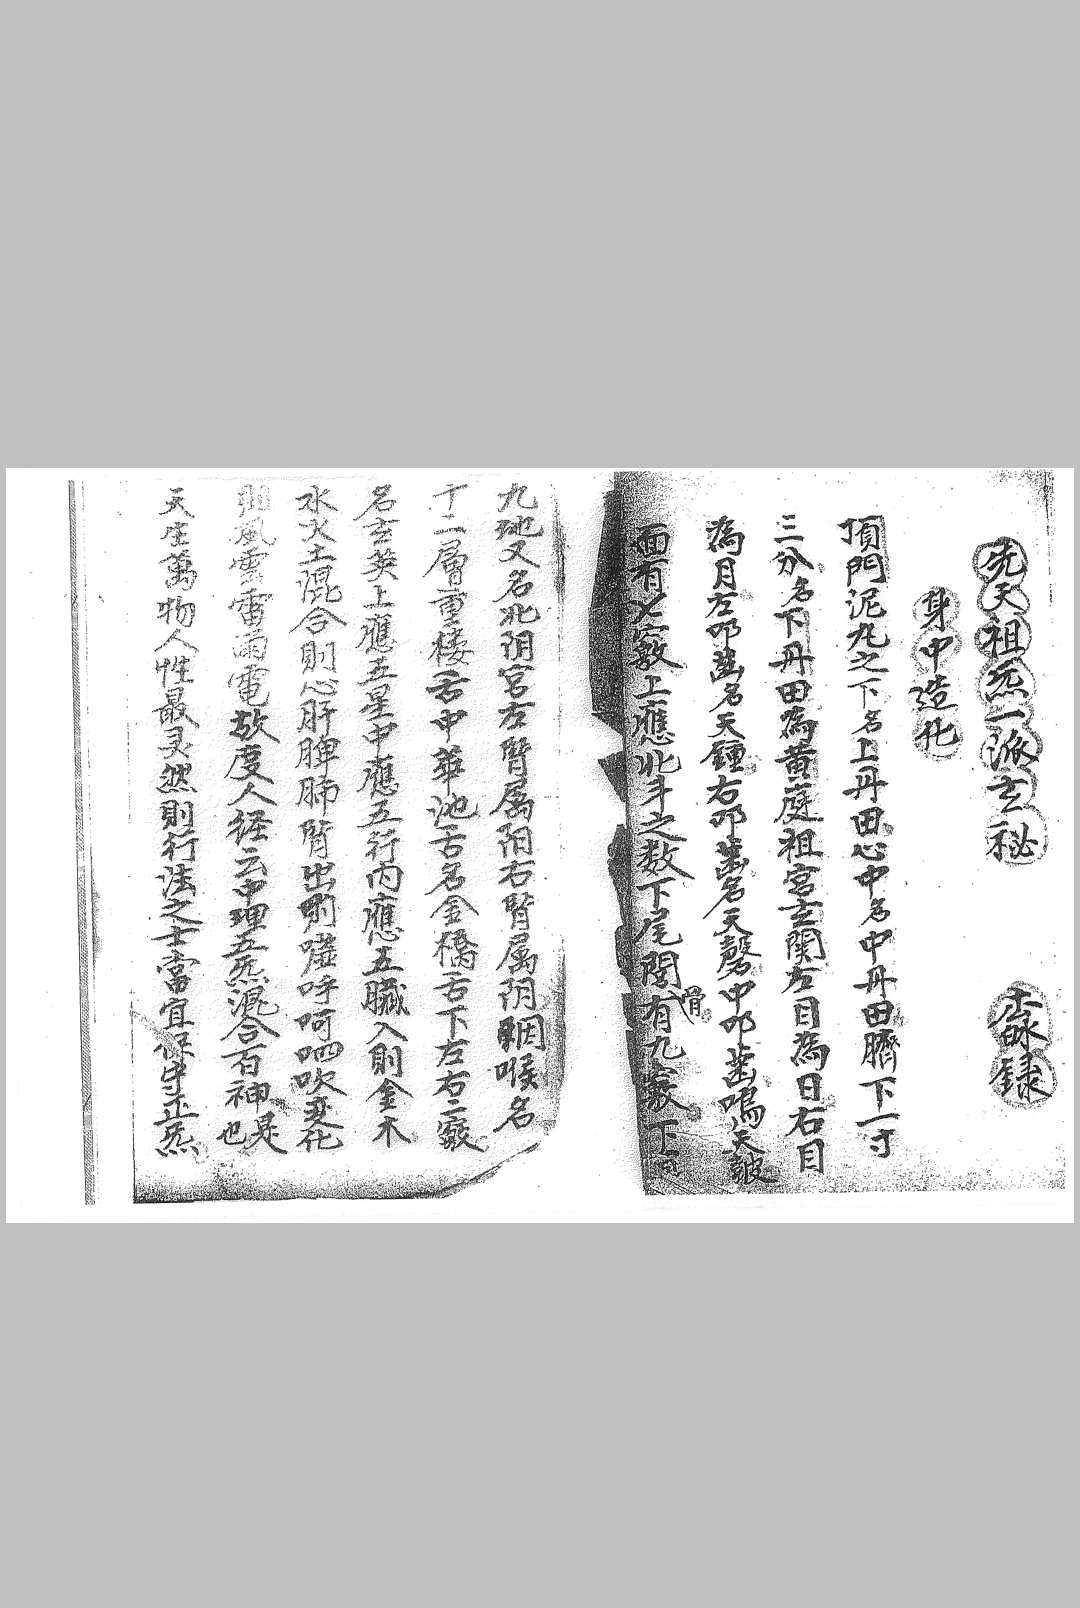 先天祖炁一派玄秘 森録
身中造化
頂門泥丸之下名上丹田心中名中丹田臍下一寸
三分名下丹田為黄庭祖宮玄関左目為日右目
為月左叩歯名天鍾右叩歯名天磬中叩歯鳴天皷
面有七竅上應北斗之数下尾閭骨有九竅下
九地又名北阴宮左腎属阳右腎属阴咽喉名
十二層重楼舌中華池舌名金橋舌下左右二竅
名玄英上應五星中應五行内應五臟入則金木
水火土混合則心肝脾肺腎出則噓呼呵呬吹变化
則風雲雷雨電故度人経云中理五炁混合百神是也
天生萬物人性最灵然則行法之士當宜保生正炁